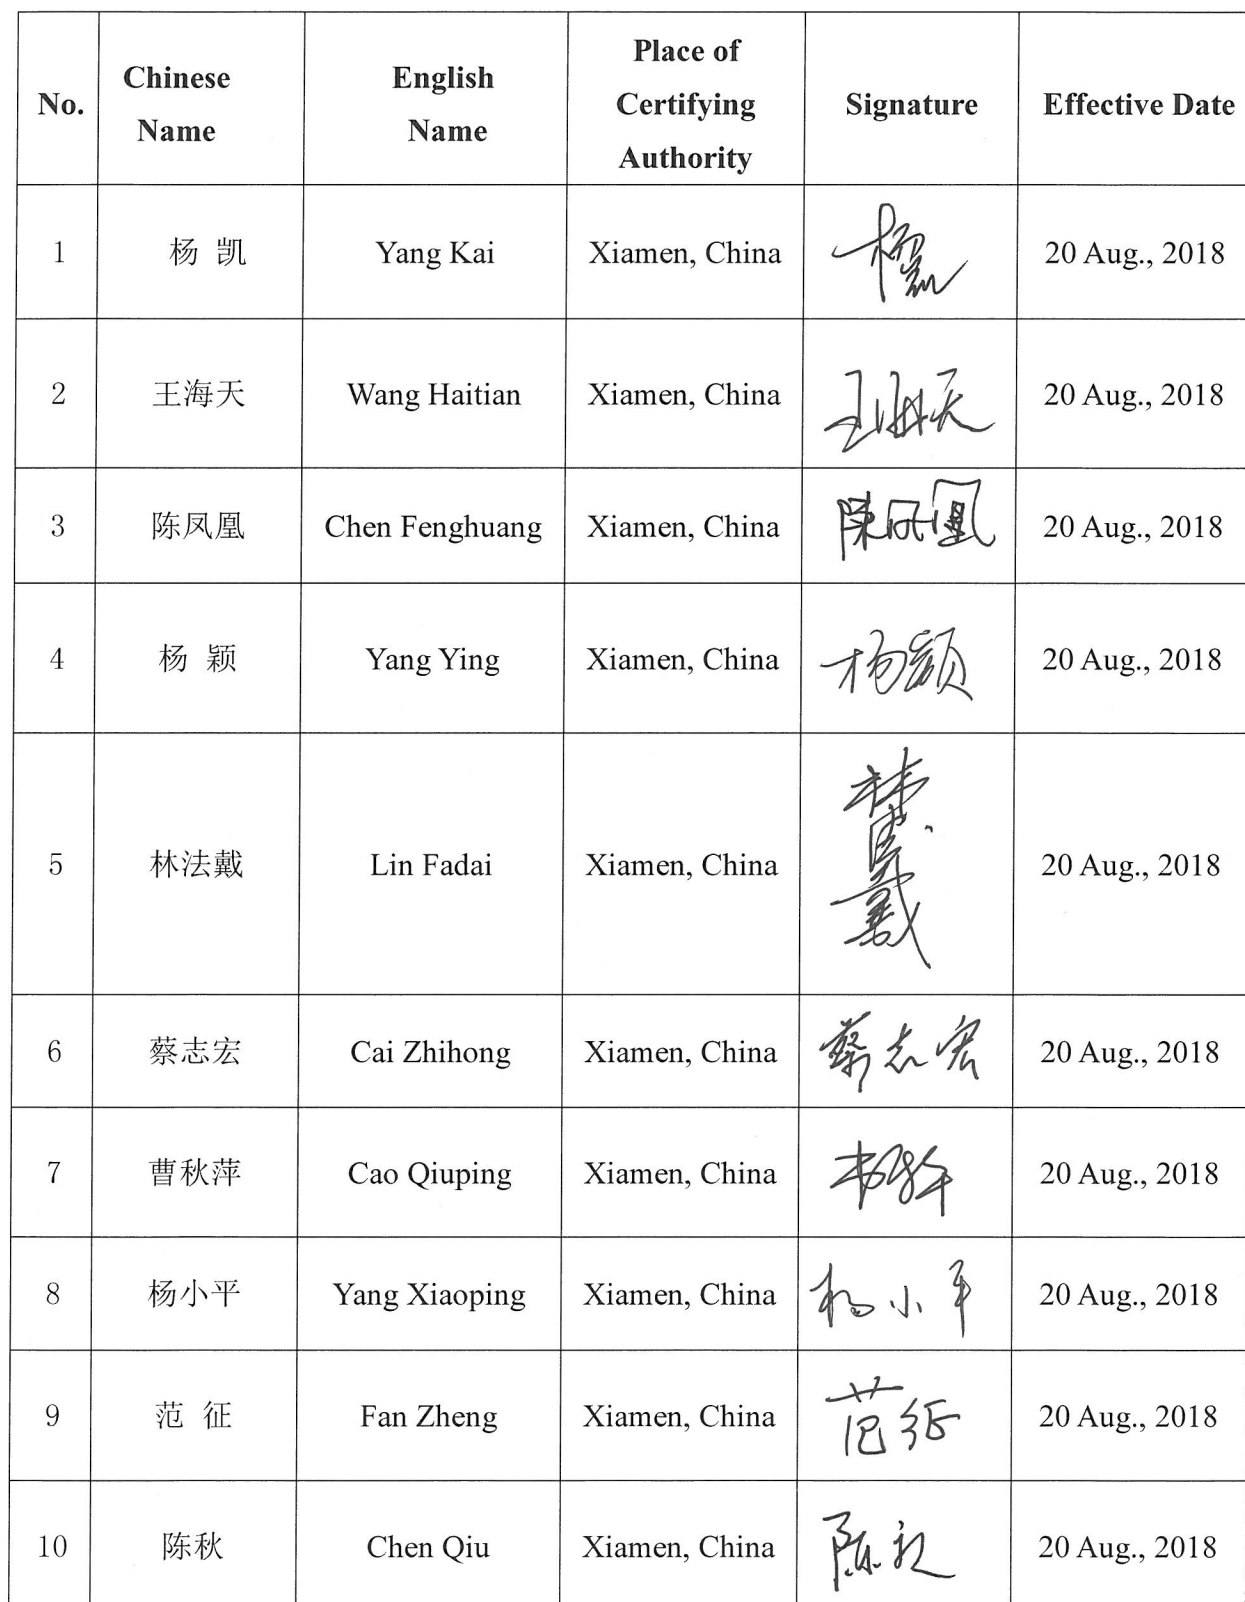 No.
Chinese
Name
English
Name
Place of
Certifying
Authority
Signature
Effective Date
1 杨 凯 Yang Kai Xiamen, China 杨凯 20 Aug., 2018
2 王海天 Wang Haitian Xiamen, China 王海天 20 Aug., 2018
3 陈凤凰 Chen Fenghuang Xiamen, China 陳凤凰 20 Aug., 2018
4 杨 颖 Yang Ying Xiamen, China 杨颖 20 Aug., 2018
5 林法戴 Lin Fadai Xiamen, China 林法戴 20 Aug., 2018
6 蔡志宏 Cai Zhihong Xiamen, China 蔡志宏 20 Aug., 2018
7 曹秋萍 Cao Qiuping Xiamen, China 20 Aug., 2018
8 杨小平 Yang Xiaoping Xiamen, China 杨小平 20 Aug., 2018
9 范 征 Fan Zheng Xiamen, China 范征 20 Aug., 2018
10 陈秋 Chen Qiu Xiamen, China 陈秋 20 Aug., 2018